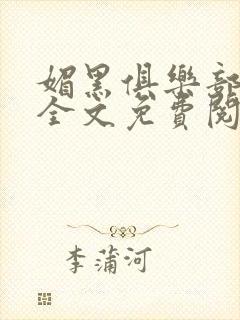 媚黑俱樂部
全文免費閱
李蒲河